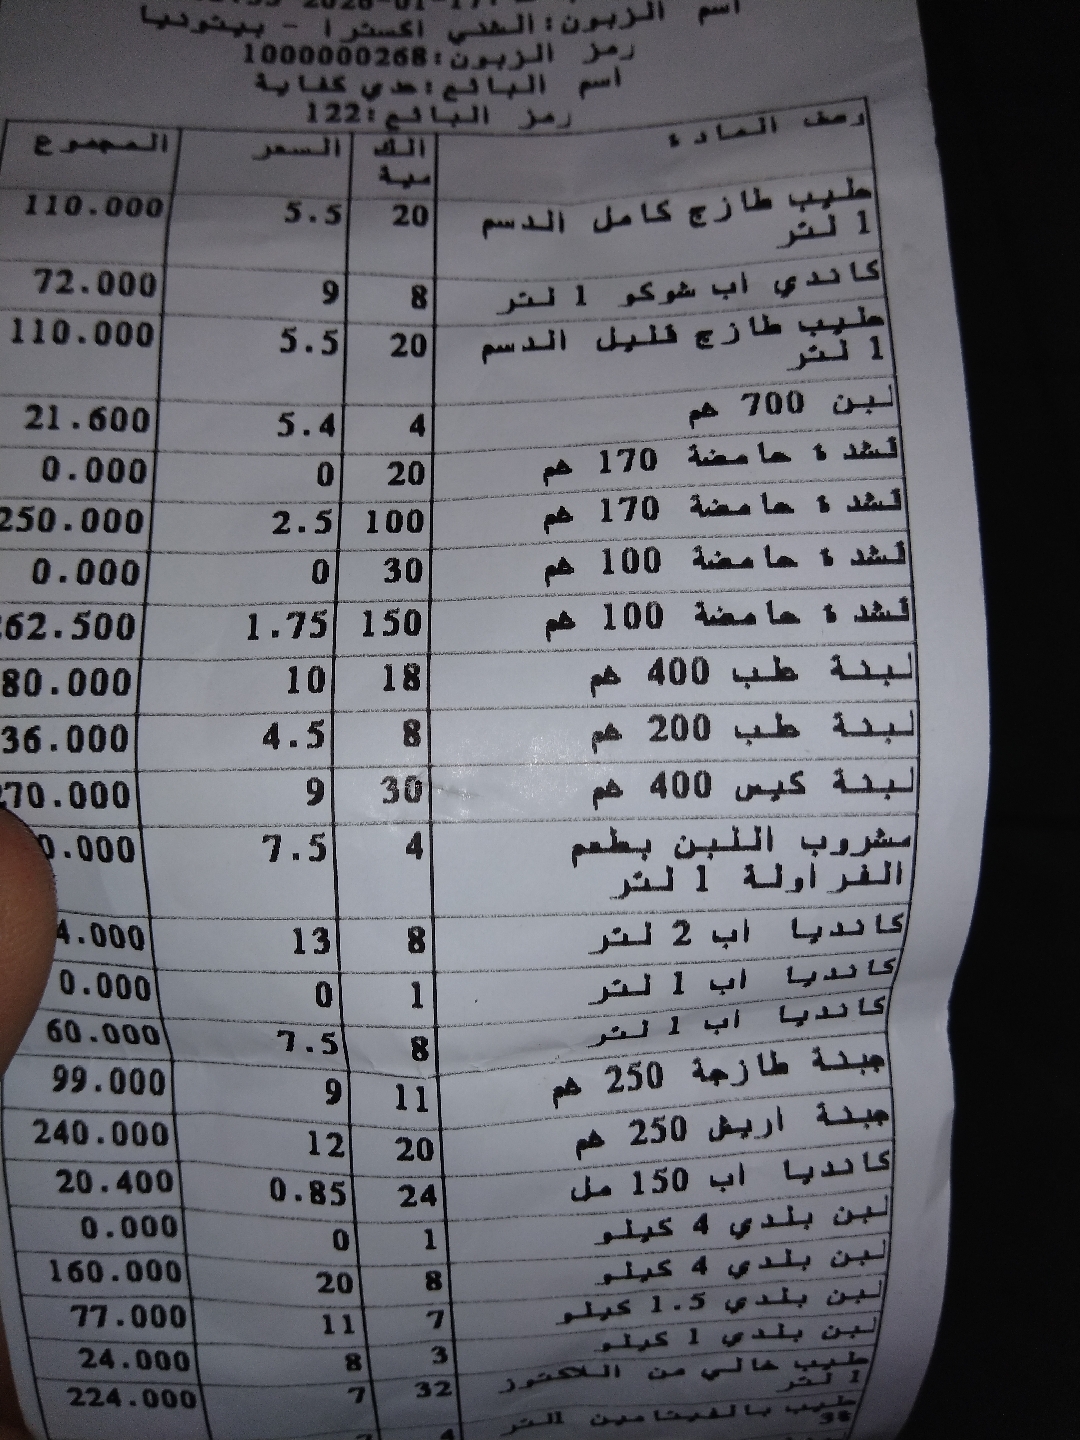 اسم الزبون:الشني اكسترا - بيتونيا
رمز الزبون:1000000268
اسم البائع:عدي كفاية
رمز البائع:122
وصف المادة الكمية السعر المجموع
حليب طازج كامل الدسم 1 لتر 20 5.5 110.000
كاندي اب شوكو 1 لتر 8 9 72.000
حليب طازج قليل الدسم 1 لتر 20 5.5 110.000
لبن 700 غم 4 5.4 21.600
قشدة حامضة 170 غم 20 0 0.000
قشدة حامضة 170 غم 100 2.5 250.000
قشدة حامضة 100 غم 30 0 0.000
قشدة حامضة 100 غم 150 1.75 62.500
لبنة علب 400 غم 18 10 80.000
لبنة علب 200 غم 8 4.5 36.000
لبنة كيس 400 غم 30 9 70.000
مشروب اللبن بطعم الفراولة 1 لتر 4 7.5 0.000
كانديا اب 2 لتر 8 13 4.000
كانديا اب 1 لتر 1 0 0.000
كانديا اب 1 لتر 8 7.5 60.000
جبنة طازجة 250 غم 11 9 99.000
جبنة اريش 250 غم 20 12 240.000
كانديا اب 150 مل 24 0.85 20.400
لبن بلدي 4 كيلو 1 0 0.000
لبن بلدي 4 كيلو 8 20 160.000
لبن بلدي 1.5 كيلو 7 11 77.000
لبن بلدي 1 كيلو 3 8 24.000
حليب خالي من اللاكتوز 1 لتر 32 7 224.000
حليب بالفيتامين 1لتر